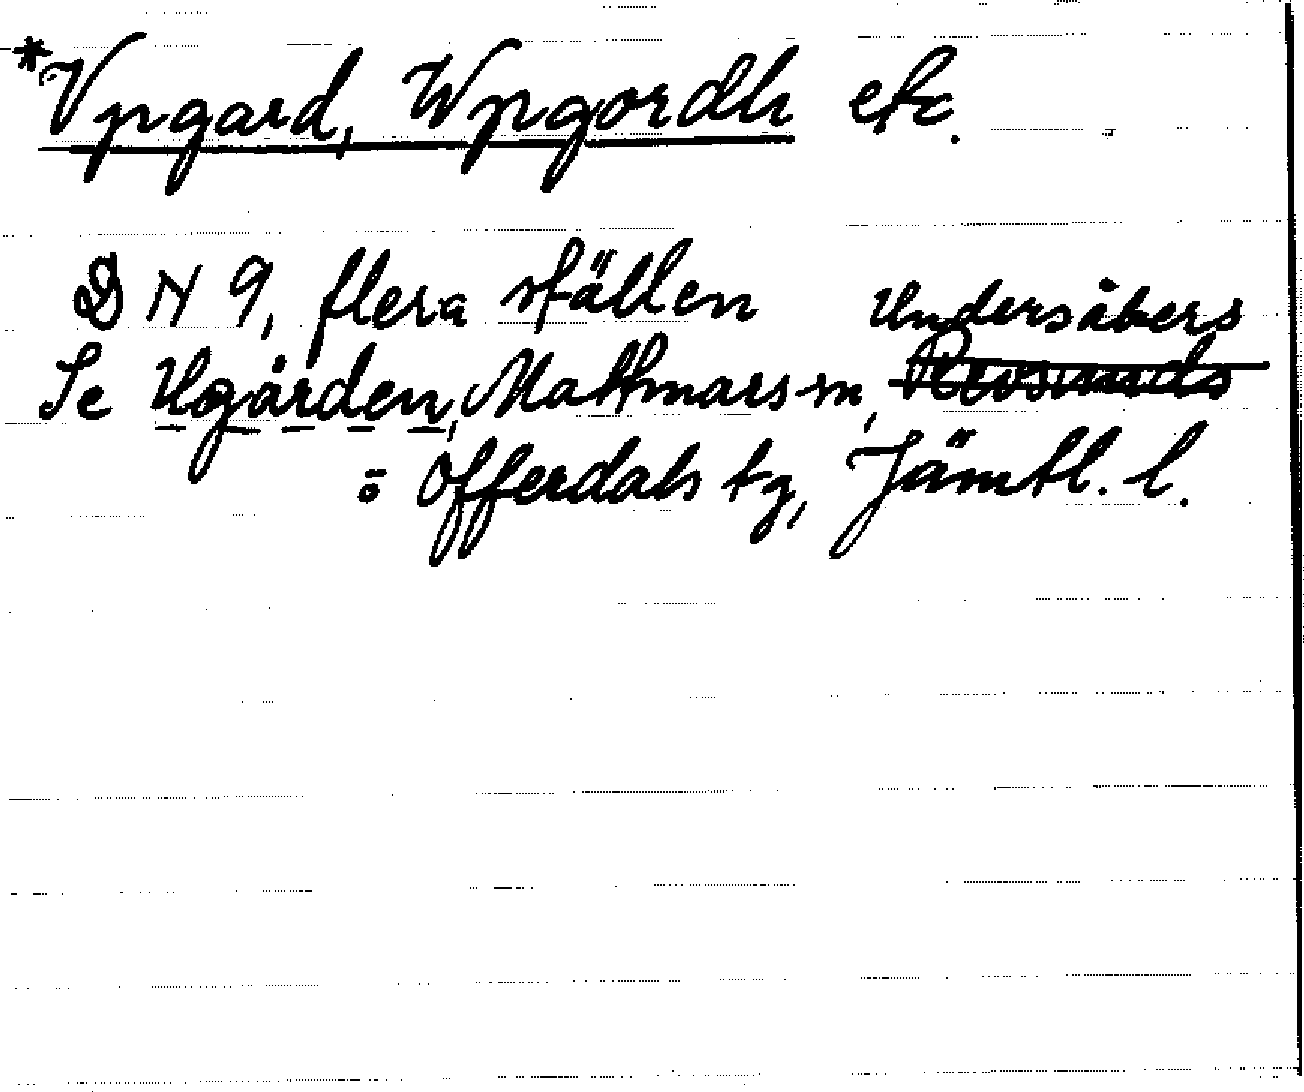 *Vpgard, Wpgordh etc.
D N 9, flera ställen
Undersåkers
Se Ugården, Mattmars sn,
o Offerdals tg, Jämtl. l.